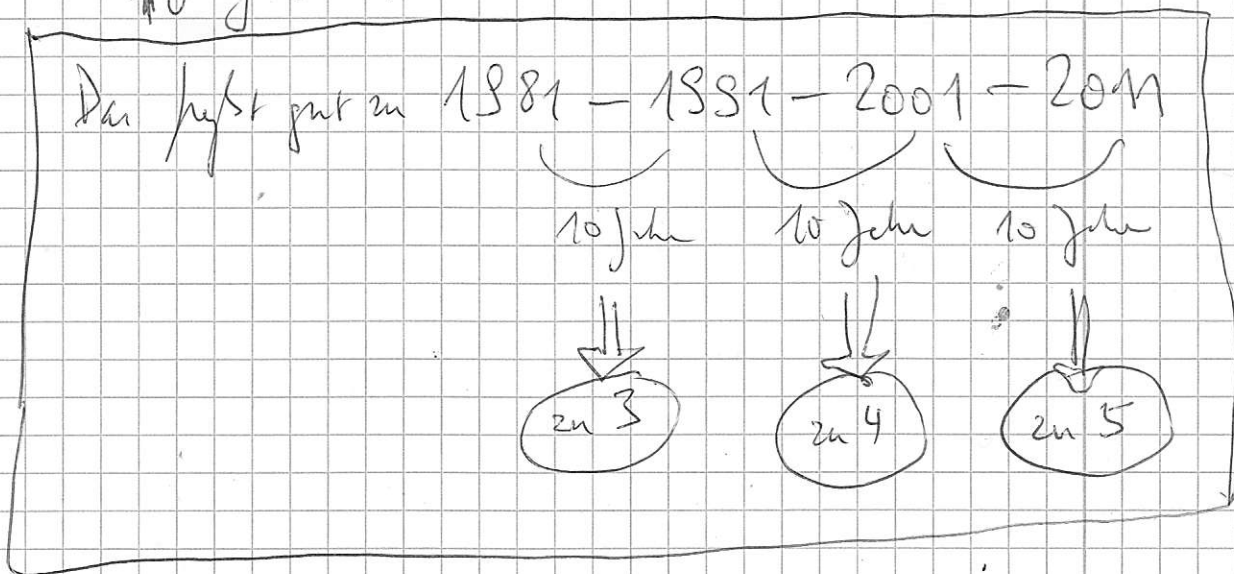 Das paßt gut zu 1981 – 1991 – 2001 – 2011
10 Jahre 10 Jahre 10 Jahre
zu 3 zu 4 zu 5